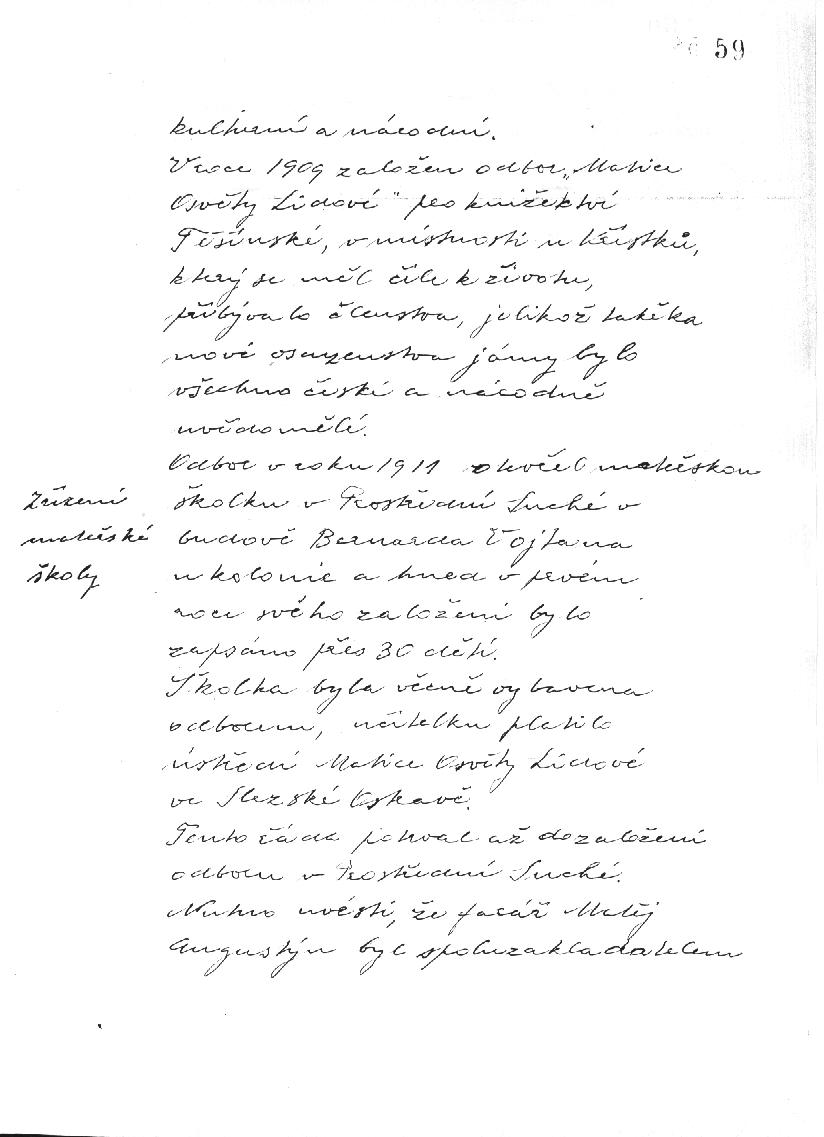 59
kulturní a národní.
V roce 1909 založen odbor „Matice
Osvěty Lidové" pro knížektví
Těšínské, v místnosti u Křístků,
který se měl čile k životu,
přibývalo členstva, jelikož takěka
nové osazenstvo jámy bylo
všechno české a národně
uvědomělé.
Odbor v roku 1911 otvořel mateřskou
Zřízení
mateřské
školy
školku v Prostřední Suché v
budově Bernarda Vojtana
u kolonie a hned v prvém
roce svého založení bylo
zapsáno přes 30 dětí.
Školka byla věcně vybavena
odborem, učitelku platilo
ústředí Matice Osvěty Lidové
ve Slezské Ostravě.
Tento řáda potrval až do založení
odboru v Prostřední Suché.
Nutno uvésti, že farář Matěj
Augustýn byl spoluzakladatelem